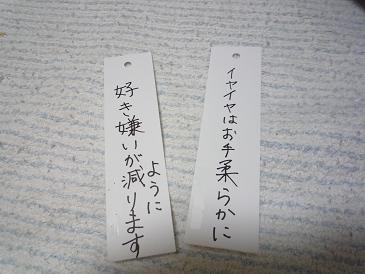 イヤイヤはお手柔らかに
好き嫌いが減ります
ように